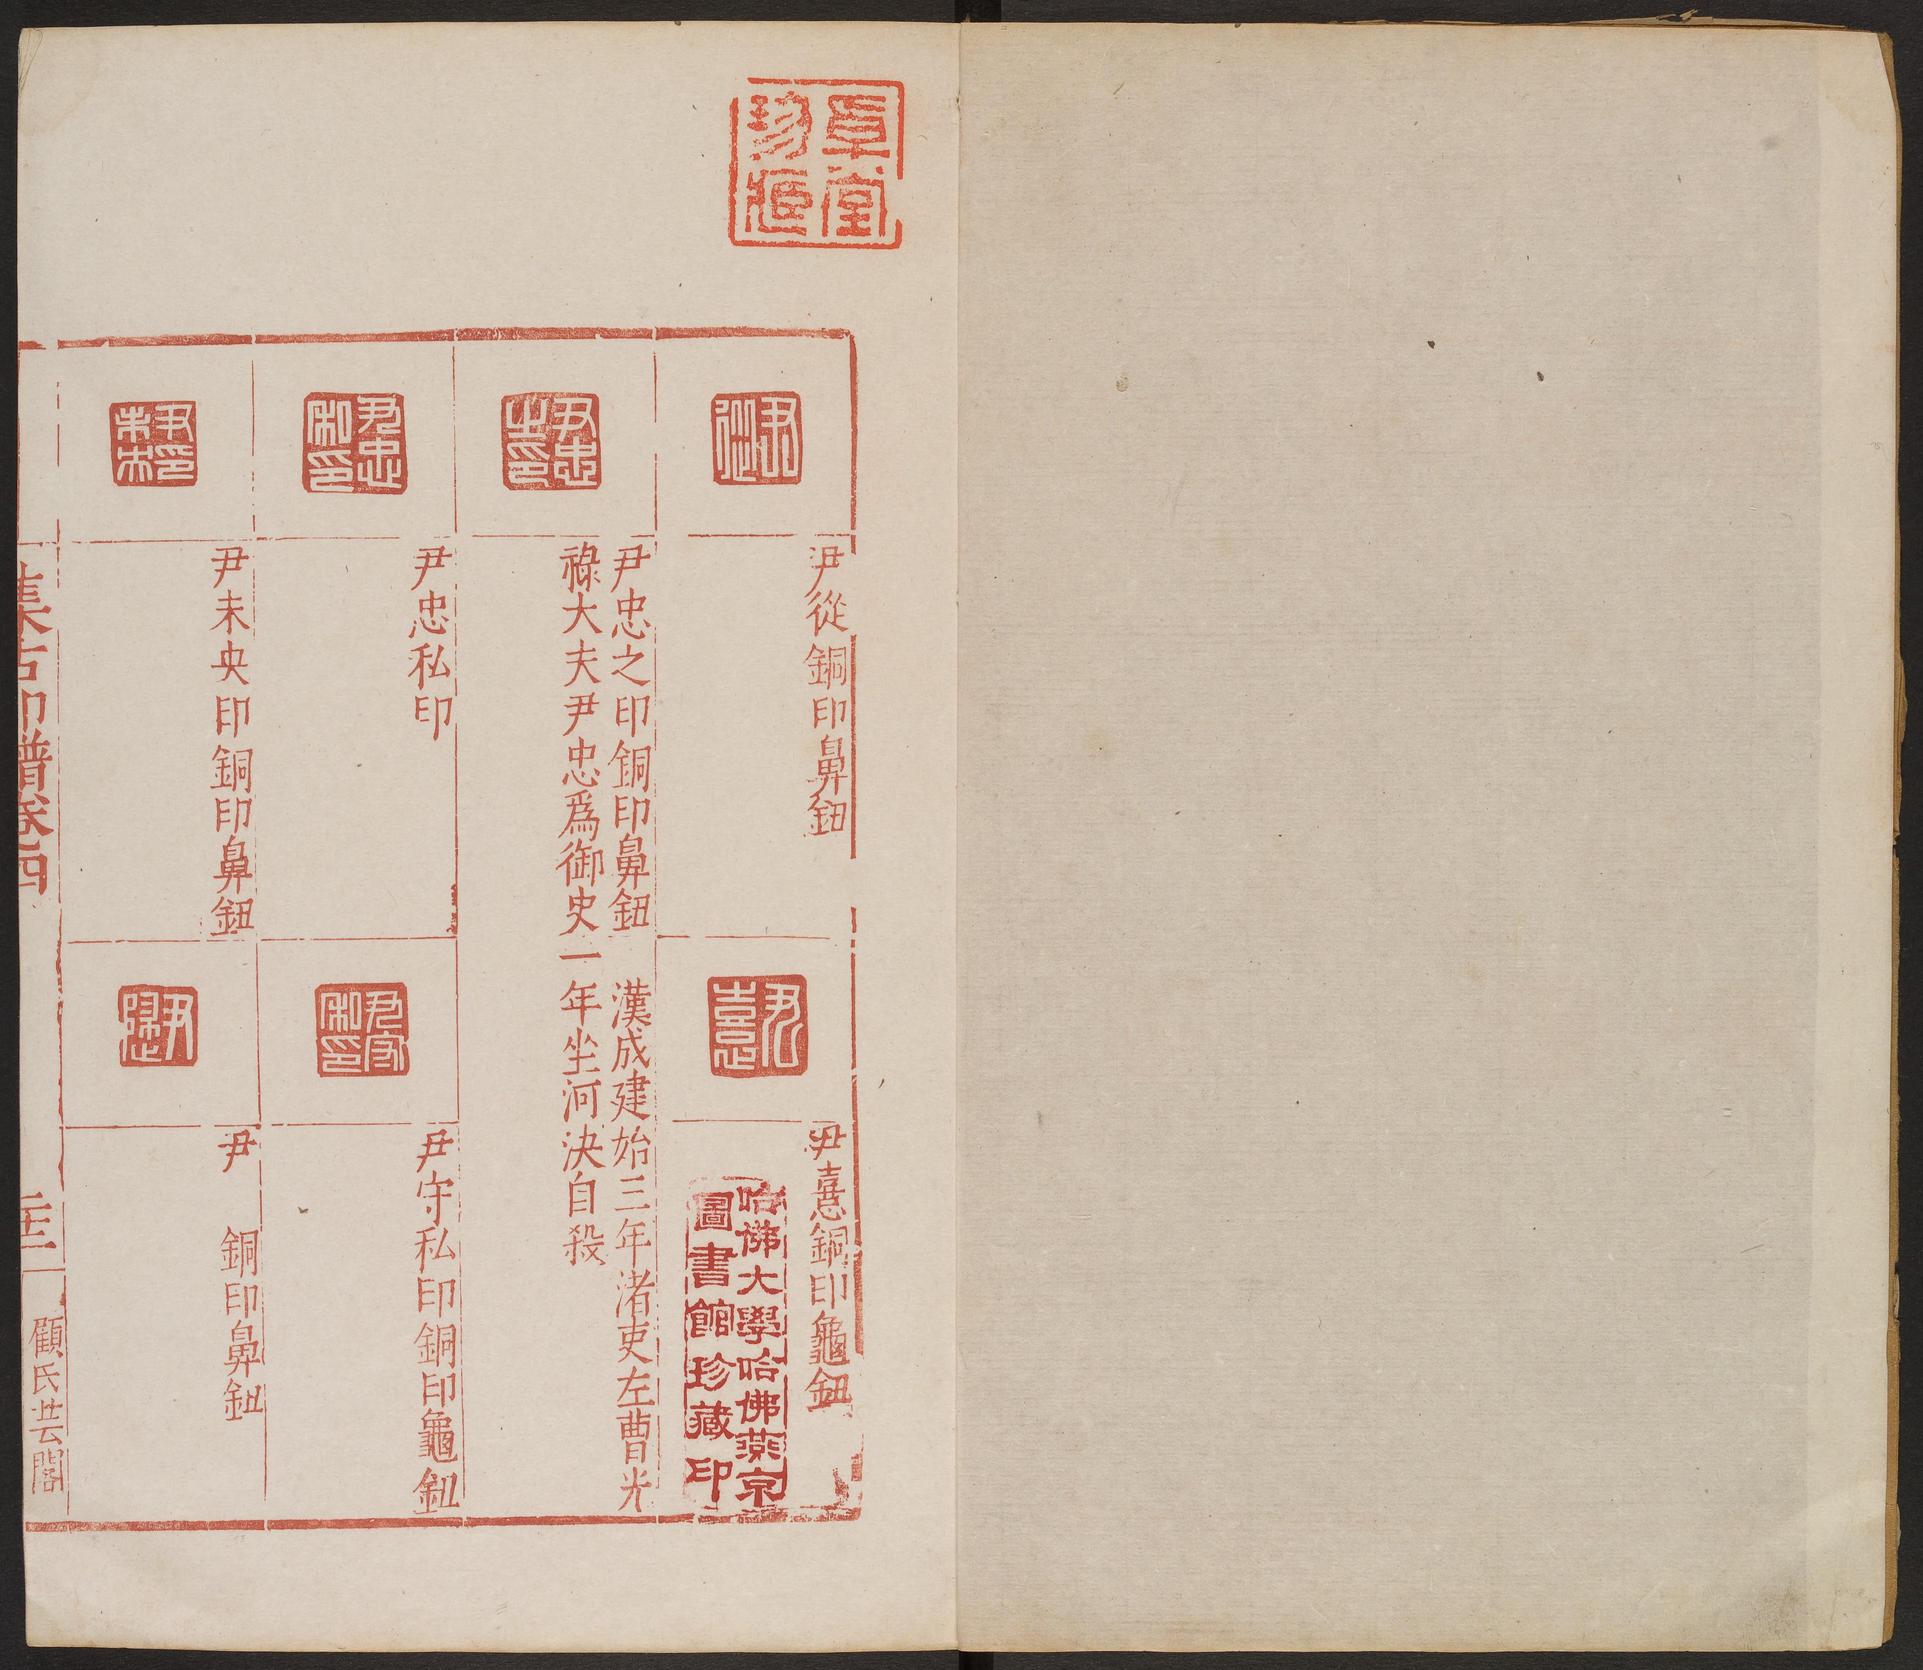 卓堂
珍藏
尹從銅印鼻鈕
尹憙銅印龜鈕
哈佛大學哈佛燕京
圖書館珍藏印
尹忠之印銅印鼻鈕 漢成建始三年渚吏左曹光
祿大夫尹忠爲御史一年坐河決自殺
尹忠私印
尹守私印銅印龜鈕
尹未央印銅印鼻鈕
尹 銅印鼻鈕
集古印譜卷四
顧氏芸閣